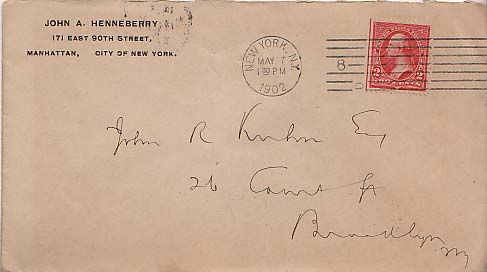 JOHN A. HENNEBERRY,
171 EAST 90TH STREET,
MANHATTAN, CITY OF NEW YORK.
NEW YORK, N.Y.
MAY 7
1 30 PM
1902
8
D
2 2
TWO CENTS
John R Kuhn Esq
26 Court St
Brooklyn
NY